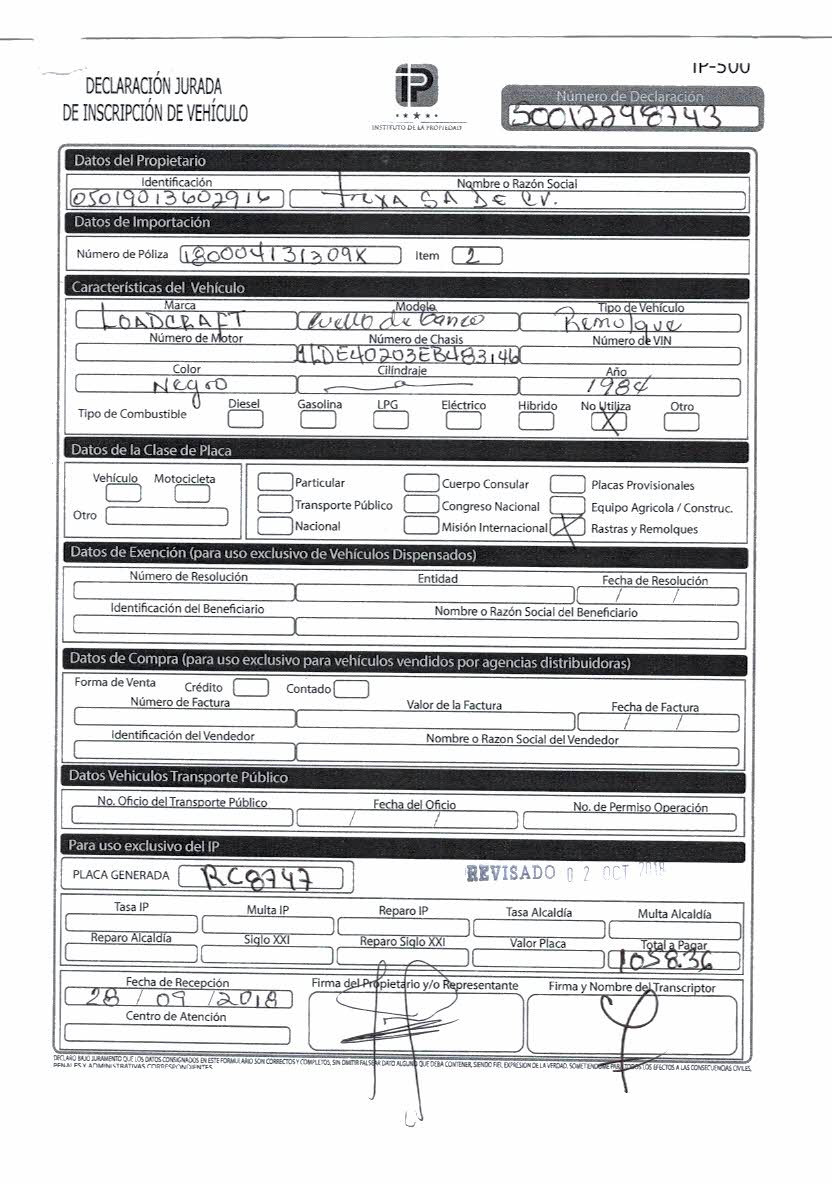 IP-500
DECLARACIÓN JURADA
DE INSCRIPCIÓN DE VEHÍCULO
IP
INSTITUTO DE LA PROPIEDAD
Número de Declaración
50012298743
Datos del Propietario
Identificación Nombre o Razón Social
05019013602916 SA DE CV.
Datos de Importación
Número de Póliza 180004131309K Item 2
Características del Vehículo
Marca Modelo Tipo de Vehículo
LOADCRAFT cuello de Ganso Remolque
Número de Motor Número de Chasis Número de VIN
1LDE40203EB483146
Color Cilíndraje Año
Negro 1984
Tipo de Combustible Diesel Gasolina LPG Eléctrico Hibrido No Utiliza Otro
X
Datos de la Clase de Placa
Vehículo Motocicleta Particular Cuerpo Consular Placas Provisionales
Otro Transporte Público Congreso Nacional Equipo Agricola / Construc.
Nacional Misión Internacional X Rastras y Remolques
Datos de Exención (para uso exclusivo de Vehículos Dispensados)
Número de Resolución Entidad Fecha de Resolución
/ /
Identificación del Beneficiario Nombre o Razón Social del Beneficiario
Datos de Compra (para uso exclusivo para vehículos vendidos por agencias distribuidoras)
Forma de Venta Crédito Contado
Número de Factura Valor de la Factura Fecha de Factura
/ /
Identificación del Vendedor Nombre o Razon Social del Vendedor
Datos Vehiculos Transporte Público
No. Oficio del Transporte Público Fecha del Oficio No. de Permiso Operación
/ /
Para uso exclusivo del IP
PLACA GENERADA RC8747 REVISADO 02 OCT 2018
Tasa IP Multa IP Reparo IP Tasa Alcaldía Multa Alcaldía
Reparo Alcaldía Siglo XXI Reparo Siglo XXI Valor Placa Total a Pagar
1058.36
Fecha de Recepción Firma del Propietario y/o Representante Firma y Nombre del Transcriptor
28 / 09 / 2018
Centro de Atención
DECLARO BAJO JURAMENTO QUE LOS DATOS CONSIGNADOS EN ESTE FORMULARIO SON CORRECTOS Y COMPLETOS, SIN OMITIR FALSEAR DATO ALGUNO QUE DEBA CONTENER, SIENDO FIEL EXPRESION DE LA VERDAD, SOMETIENDOME PARA TODOS LOS EFECTOS A LAS CONSECUENCIAS CIVILES,
PENALES Y ADMINISTRATIVAS CORRESPONDIENTES